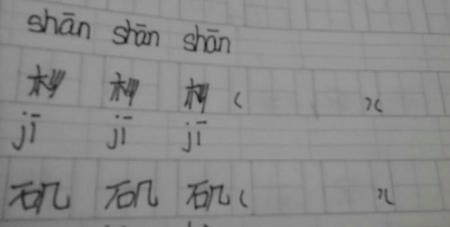 shān shān shān
杉 杉 杉 (        )(
jī jī jī
矶 矶 矶 (        )(